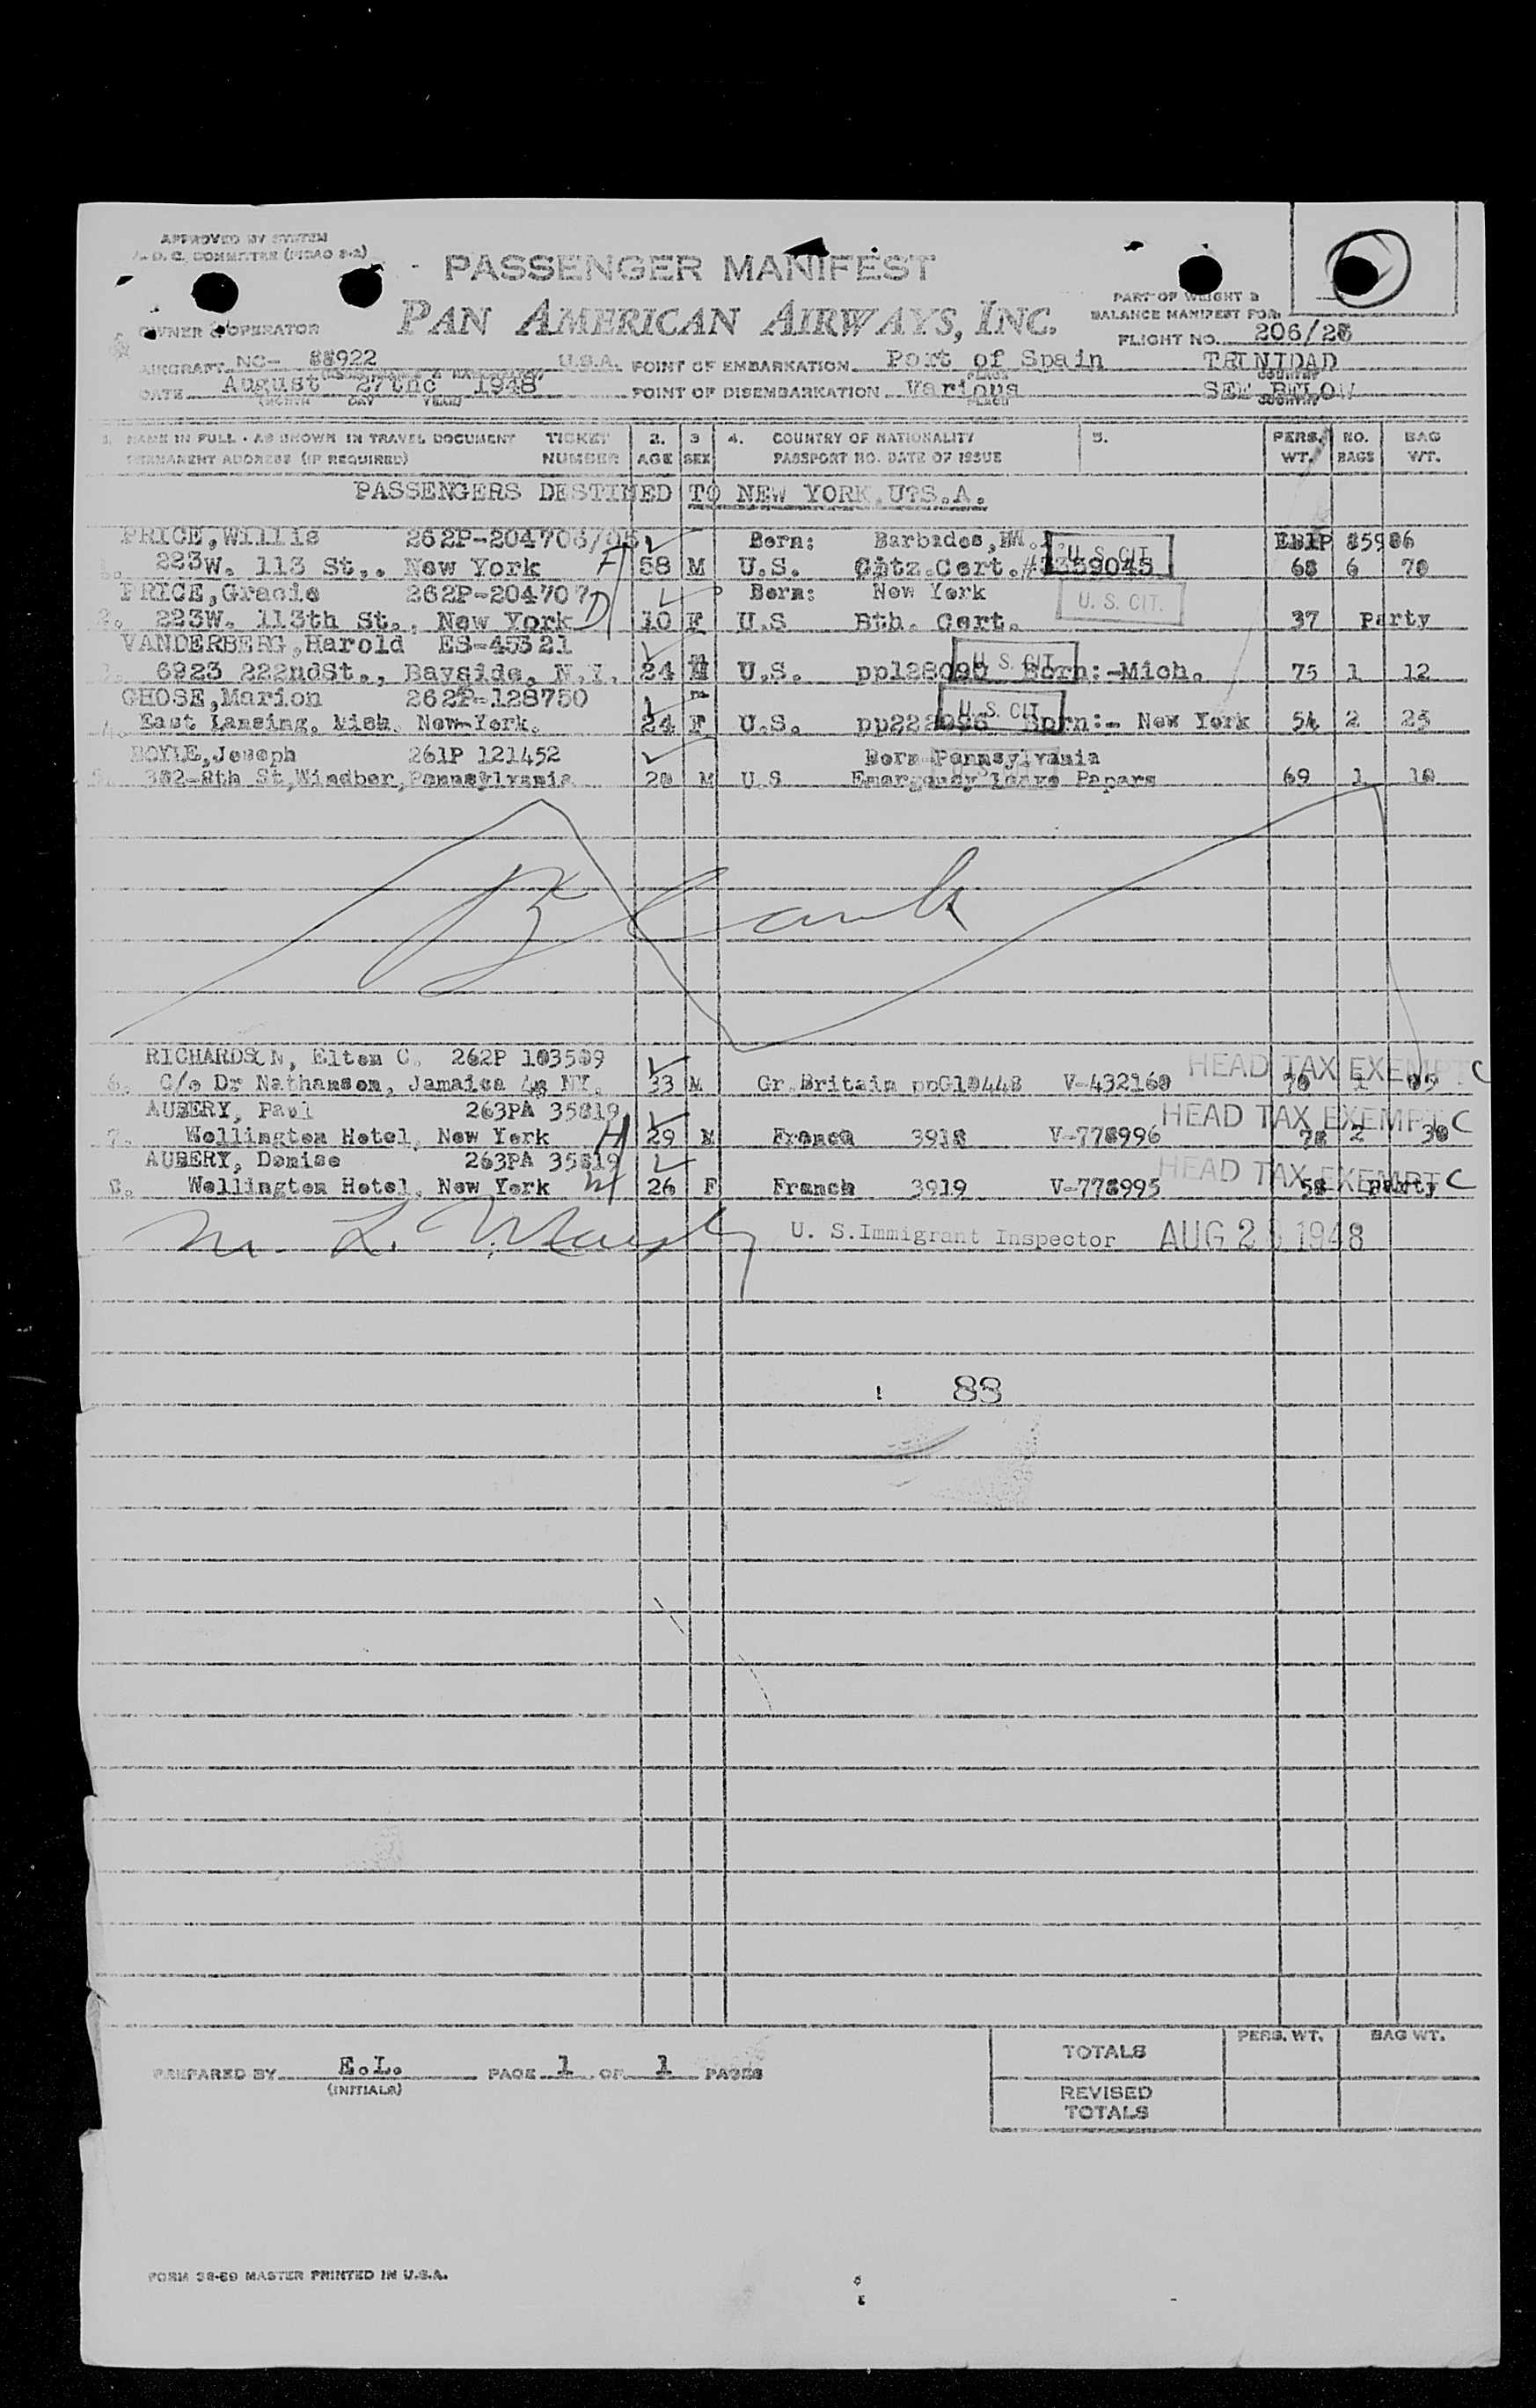 APPROVED BY SYSTEM
PASSENGER MANIFEST
PAN AMERICAN AIRWAYS, INC.
PART OF WEIGHT &
BALANCE MANIFEST FOR
OWNER & OPERATOR
FLIGHT NO. 206/26
AIRCRAFT NC- 88922 U.S.A. POINT OF EMBARKATION Port of Spain TRINIDAD
PLACE COUNTRY
DATE August 27the 1948 POINT OF DISEMBARKATION Various SEE BELOW
MONTH DAY YEAR PLACE COUNTRY
1. NAME IN FULL - AS SHOWN IN TRAVEL DOCUMENT TICKET 2. 3 4. COUNTRY OF NATIONALITY 5. PERS. NO. BAG
PERMANENT ADDRESS (IF REQUIRED) NUMBER AGE SEX PASSPORT NO. DATE OF ISSUE WT. BAGS WT.
PASSENGERS DESTINED TO NEW YORK U.S.A.
PRICE,Willis 262P-204706/05 Born: Barbados, U.S. CIT. 85986
1. 223W. 113 St,. New York F 58 M U.S. Citz.Cert. 68 6 70
PRICE,Gracie 262P-204707 Born: New York U. S. CIT.
2. 223W. 113th St., New York D 10 F U.S Bth. Cert. 37 Party
VANDERBERG,Harold ES-45321 U. S. CIT.
3. 6923 222ndSt., Bayside, N.Y. 24 M U.S. pp128090 Born:-Mich. 75 1 12
GHOSE,Marion 262P-128750 m U. S. CIT.
4. East Lansing, Mich. New-York. 24 F U.S. pp222096 Born:- New York 54 2 25
BOYLE,Joseph 261P 121452 Born Pennsylvania
5. 302-8th St,Windber,Pennsylvania 20 M U.S Emergency leave Papers 69 1 10
Blank
RICHARDSON, Elton C. 262P 103509 HEAD TAX EXEMPT C
6. C/o Dr Nathanson, Jamaica NY. 33 M Gr.Britain ppG10448 V-432160 70 1 05
AUBERY, Paul 263PA 35819 HEAD TAX EXEMPT C
7. Wellington Hotel, New York H 29 M France 3918 V-778996 78 2 30
AUBERY, Denise 263PA 35819 HEAD TAX EXEMPT C
8. Wellington Hotel, New York W 26 F France 3919 V-778995 58 Party
U. S.Immigrant Inspector AUG 28 1948
88
PREPARED BY E.L. PAGE 1 OF 1 PAGES
(INITIALS)
TOTALS PERS. WT. BAG WT.
REVISED
TOTALS
FORM 38-69 MASTER PRINTED IN U.S.A.